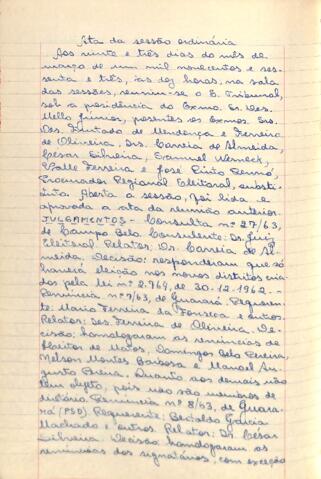 Ata da sessão ordinária
Aos vinte e três dias do mês de
março de um mil novecentos e ses-
senta e três, às dez horas, na sala
das sessões, reuniu-se o E. Tribunal,
sob a presidência do Exmo. Sr. Des.
Mello Júnior, presentes os Exmos. Srs.
Des. Furtado de Mendonça e Ferreira
de Oliveira, Drs. Correia de Almeida,
Cesar Silveira, Samuel Werneck,
Valle Ferreira e José Pinto Renó,
Procurador Regional Eleitoral, substi-
tuto. Aberta a sessão, foi lida e
aprovada a ata da reunião anterior.
JULGAMENTOS - Consulta nº 27/63,
de Campo Belo. Consulente: Dr. Juiz
Eleitoral. Relator: Dr. Correia de Al-
meida. Decisão: responderam que só
haverá eleição nos novos distritos cria-
dos pela lei nº 2.764, de 30-12-1962.-
Renúncia nº 7/63, de Guarará. Requeren-
te: Mario Ferreira da Fonseca e outros.
Relator: Des. Ferreira de Oliveira. De-
cisão: homologaram as renúncias de
de Matos, Domingos Bela Pereira,
Nelson Montes Barbosa e Manoel Au-
gusto Pereira. Quanto aos demais não
tem objeto, pois não são membros de
diretório. Renúncia nº 8/63, de Guara-
rá (PSD). Requerente: Garcia
Machado e outros. Relator: Dr. Cesar
Silveira. Decisão: homologaram as
renúncias dos signatários, com exceção